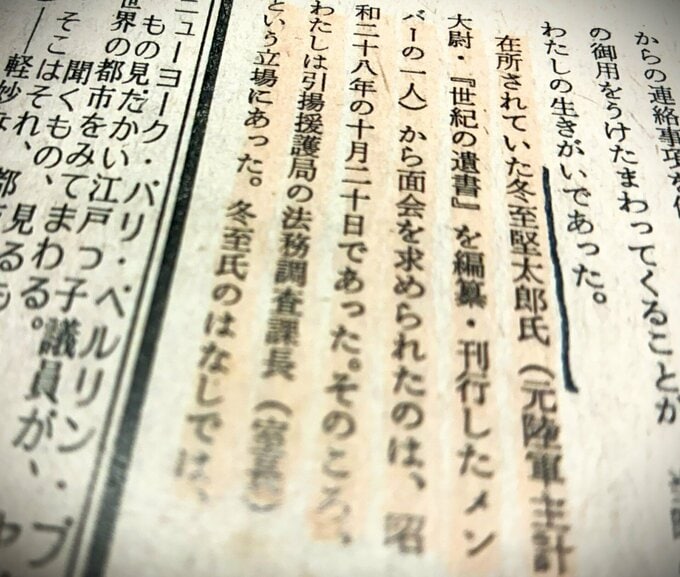 からの連絡事項を
の御用をうけたまわってくることが
わたしの生きがいであった。
在所されていた冬至堅太郎氏（元陸軍主計
大尉・『世紀の遺書』を編纂・刊行したメン
バーの一人）から面会を求められたのは、昭
和二十八年の十月二十日であった。そのころ、
わたしは引揚援護局の法務調査課長（室長）
という立場にあった。冬至氏のはなしでは、
ニューヨーク・パリ・ベルリン・プ
もの見たかい江戸っ子議員が、
世界の都市をみてまわる。
聞くもの、見るも
そこはそれ、都
軽妙な